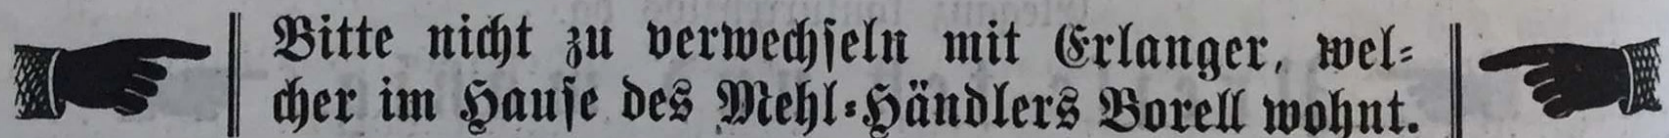 Bitte nicht zu verwechseln mit Erlanger, wel-
cher im Hause des Mehl-Händlers Borell wohnt.